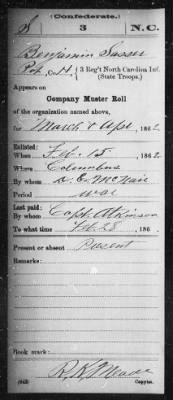 (Confederate.)
S 3 N.C.
Benjamin Susser
Pvt, Co. H, 3 Reg't North Carolina Inf.
(State Troops.)
Appears on
Company Muster Roll
of the organization named above,
for March & Apl, 1862.
Enlisted:
When Feb. 15, 1862.
Where Columbus
By whom D. E. McNair
Period war
Last paid:
By whom Capt. Atkinson
To what time Feb. 28, 186
Present or absent Present
Remarks:
Book mark:
R. K. Meade
Copyist.